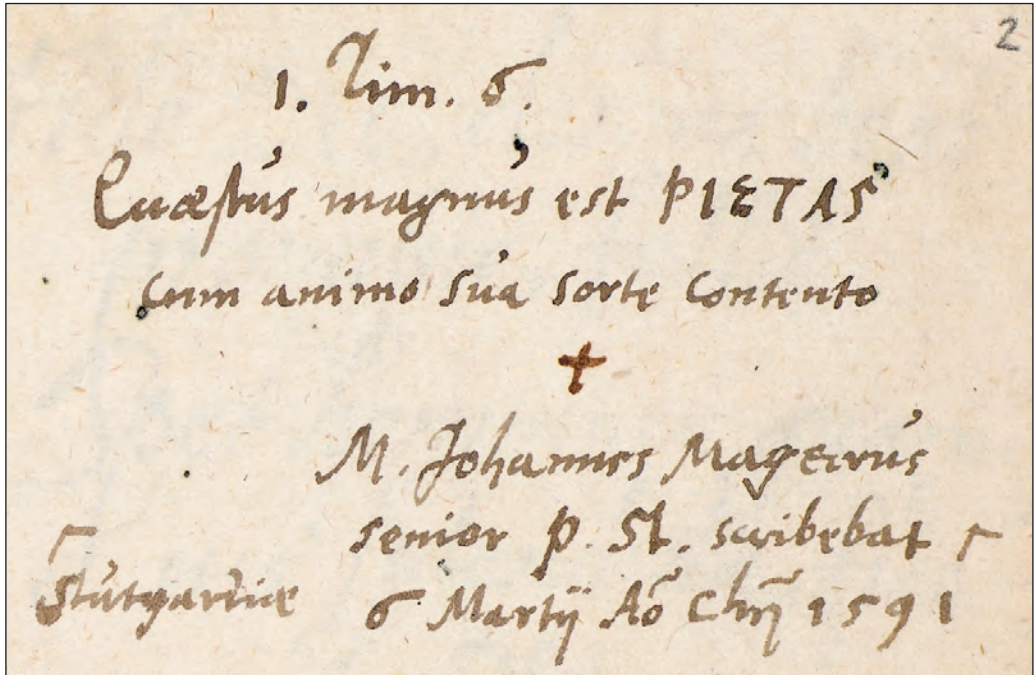 2
1. Tim. 6.
Quæstus magnus est PIETAS
cum animo sua sorte contento
M. Johannes Mageirus
senior p. St. scribebat
Stutgardiæ 6 Martij Aō Chrj 1591